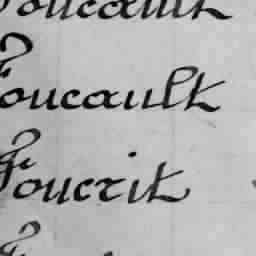 Foucault
Foucault
Foucrit